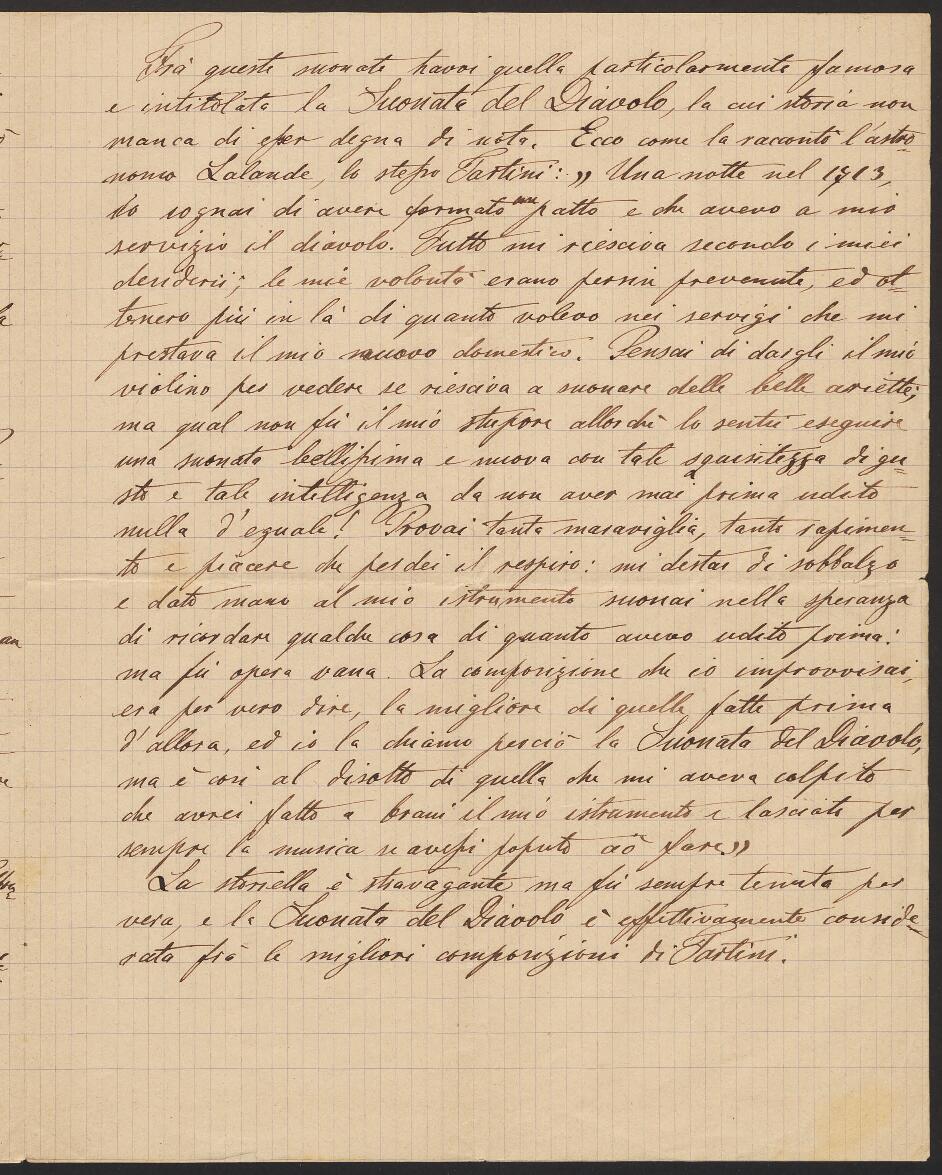 Frà queste suonate havvi quella particolarmente famosa
e intitolata la Suonata del Diavolo, la cui storia non
manca di esser degna di nota. Ecco come la raccontò l'astro=
nomo Lalande, lo stesso Tartini: „ Una notte nel 1713,
io sognai di avere formato un patto e che avevo a mio
servizio il diavolo. Tutto mi riesciva secondo i miei
desiderii; le mie volontà erano persin prevenute, ed ot=
tenero più in là di quanto volevo nei servigi che mi
prestava il mio nuovo domestico. Pensai di dargli il mio
violino per vedere se riesciva a suonare delle belle ariette;
ma qual non fù il mio stupore allorchè lo sentii eseguire
una suonata bellissima e nuova con tale squisitezza di gu=
sto e tale intelligenza da non aver mai prima udito
nulla d'eguale! Provai tanta maraviglia, tanto rapimen=
to e piacere che perdei il respiro: mi destai di sobbalzo
e dato mano al mio istrumento suonai nella speranza
di ricordare qualche cosa di quanto avevo udito prima:
ma fù opera vana. La composizione che io improvvisai,
era per vero dire, la migliore di quelle fatte prima
d'allora, ed io la chiamo perciò la Suonata del Diavolo,
ma è così al disotto di quella che mi aveva colpito
che avrei fatto a brani il mio istrumento e lasciato per
sempre la musica se avessi potuto ciò fare.„
La storiella è stravagante ma fù sempre tenuta per
vera, e la Suonata del Diavolo è effettivamente conside=
rata frà le migliori composizioni di Tartini.